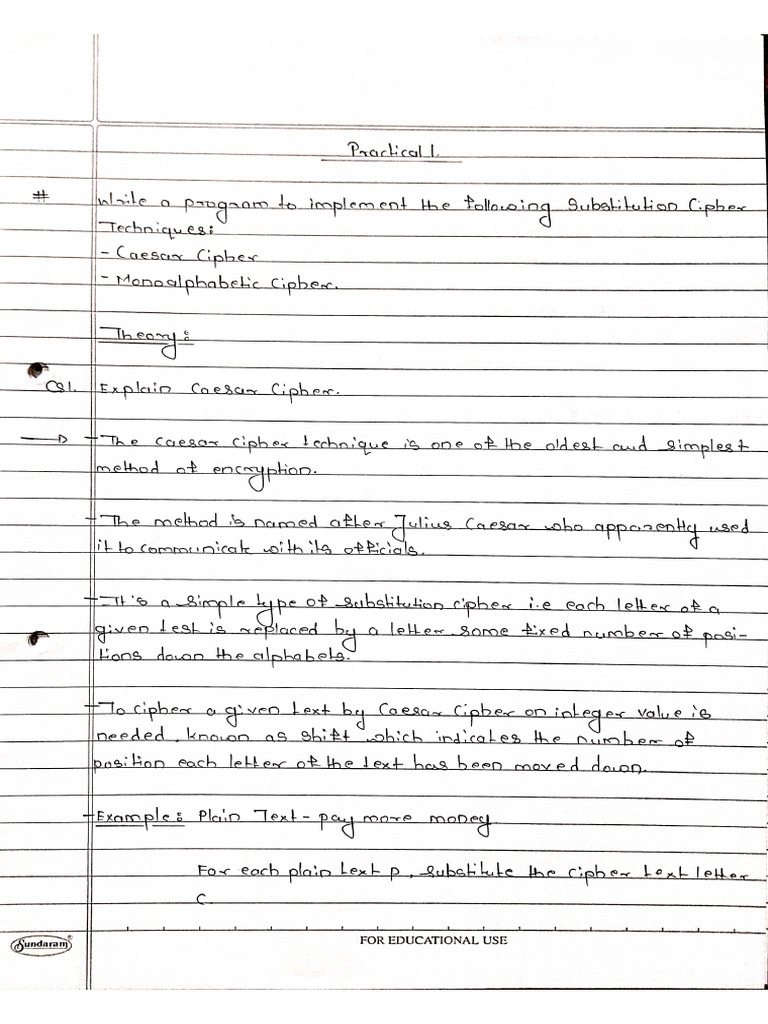 Practical 1.
# Write a program to implement the following Substitution Cipher
Techniques:
- Caesar Cipher
- Monoalphabetic Cipher.
Theory:
Q1. Explain Caesar Cipher.
→ - The caesar cipher technique is one of the oldest and simplest
method of encryption.
- The method is named after Julius Caesar who apparently used
it to communicate with its officials.
- It's a simple type of substitution cipher i.e each letter of a
given test is replaced by a letter some fixed number of posi-
tions down the alphabets.
- To cipher a given text by Caesar Cipher an integer value is
needed, known as shift which indicates the number of
position each letter of the text has been moved down.
- Example: Plain Text - pay more money
For each plain text p, substitute the cipher text letter
C.
Sundaram®
FOR EDUCATIONAL USE